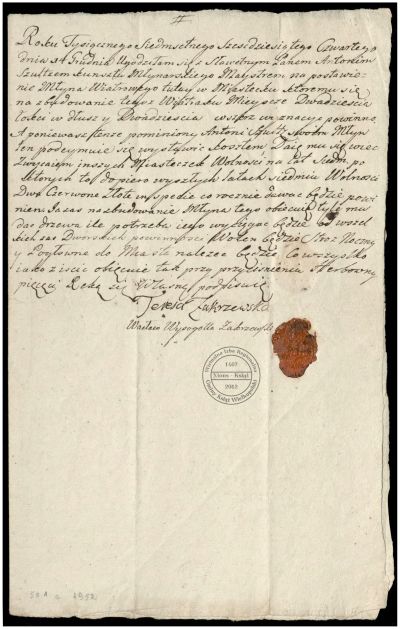 Roku Tysiącznego Siedmsetnego Szesidziesiętego Czwartego
dnia 14 Grudnia Ugodziłam się z Sławetnym Panem Antonim
Szultzem kunsztu Młynarskiego Maystrem, na postawie
nie Młyna Wiatrowego tutay w Miasteczku ktoremu się
na zbudowanie tegoz Wiatraku Mieysce Dwadziescia
łokci w dłusz y Dwadziescia wszerz wyznaczyc powinno.
A poniewasz tenze pomieniony Antoni Szultz swoim Młyn
ten podeymuie się wystawic kosztem Daię mu się wiec
Zwyczaiem inszych Miasteczek Wolnosci na lat Siedm, po
ktorych to dopiero wyszłych latach siedmiu Wolnosci
Dwa Czerwone Złote corocznie dawac będzie powi
nien Ia zas na zbudowanie Młyna tego obiecuię tyle mu
dac drzewa ile potrzeba
Dworskich powinnosci Wolen będzie Stroz Nocny
y Pogłowne do Miasta nalezec będzie Co wszystko
iako ziscic obiecuię tak przy przycisnieniu Herbowny
pieczęci Ręką się Własną podpisuię
Teresa Zakrzewska
Wacław Wyssogotta Zakrzewski
Wirtualna Izba Regionalna
1407
Xions - Książ
2012
Gminy Książ Wielkopolski